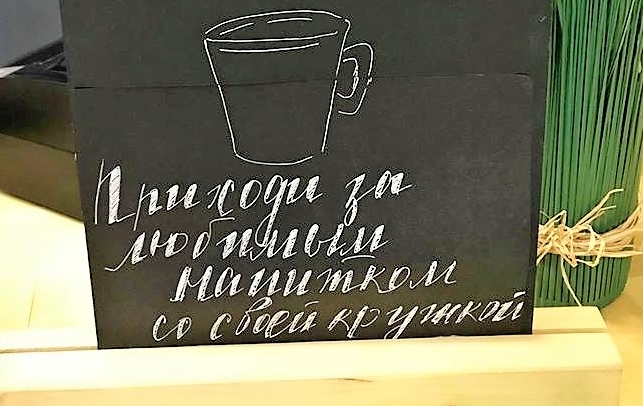 Приходи за
любимым
напитком
со своей кружкой